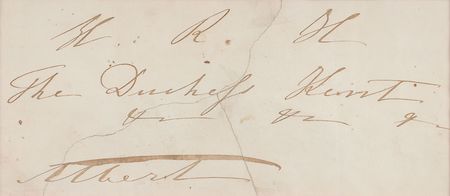 H. R H
The Duchess Kent
&c &c &c
Albert